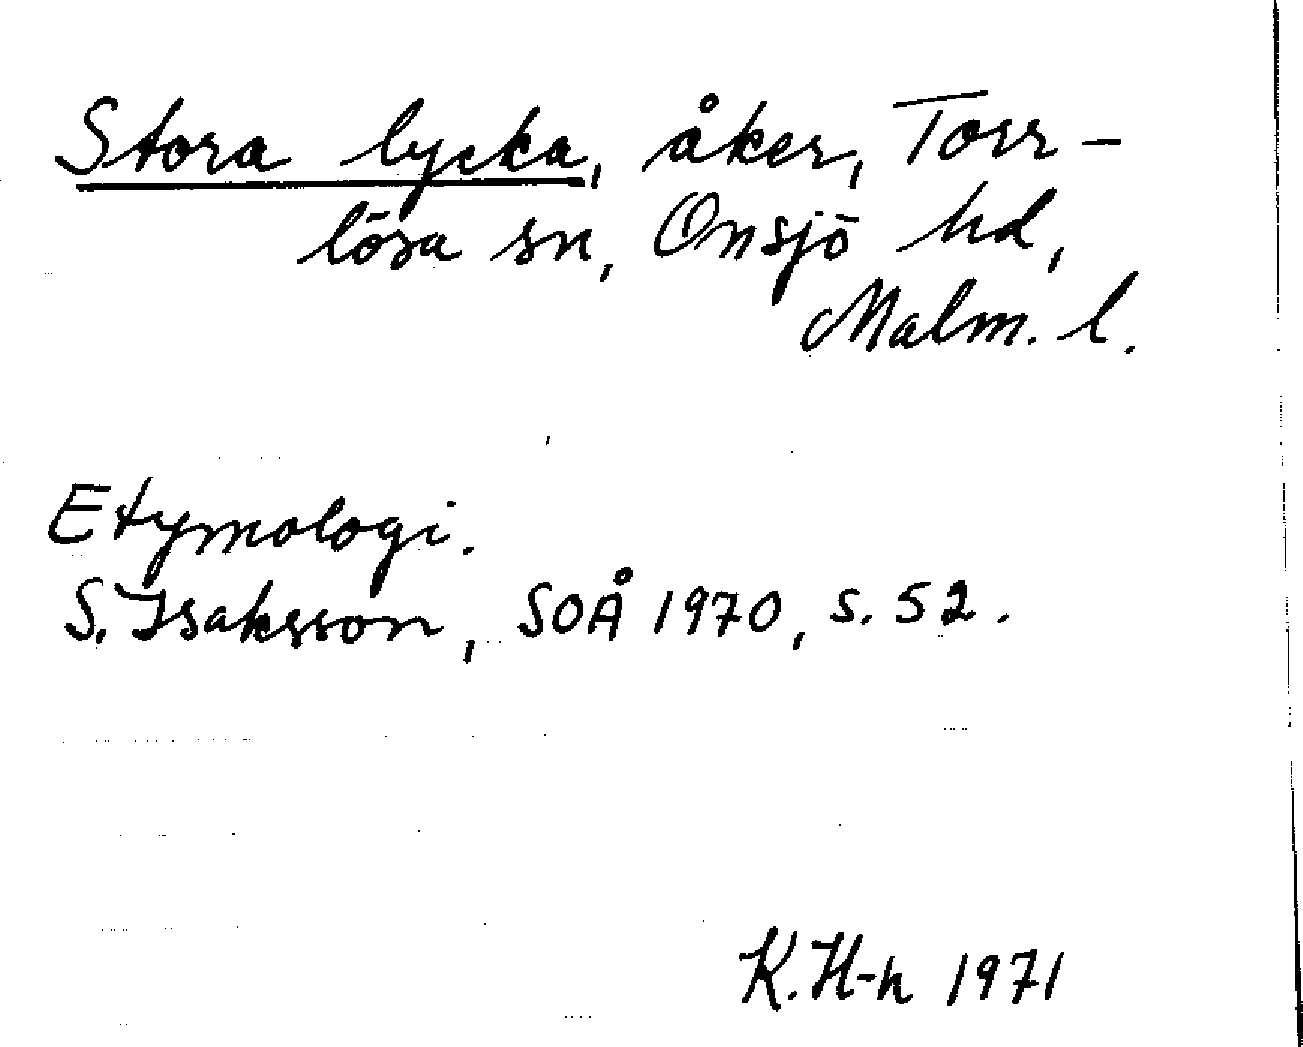 Stora lycka, åker, Torr-
lösa sn, Onsjö hd,
Malm. l.
Etymologi.
S. Isaksson, SOÅ 1970, s. 52.
K. H-n 1971